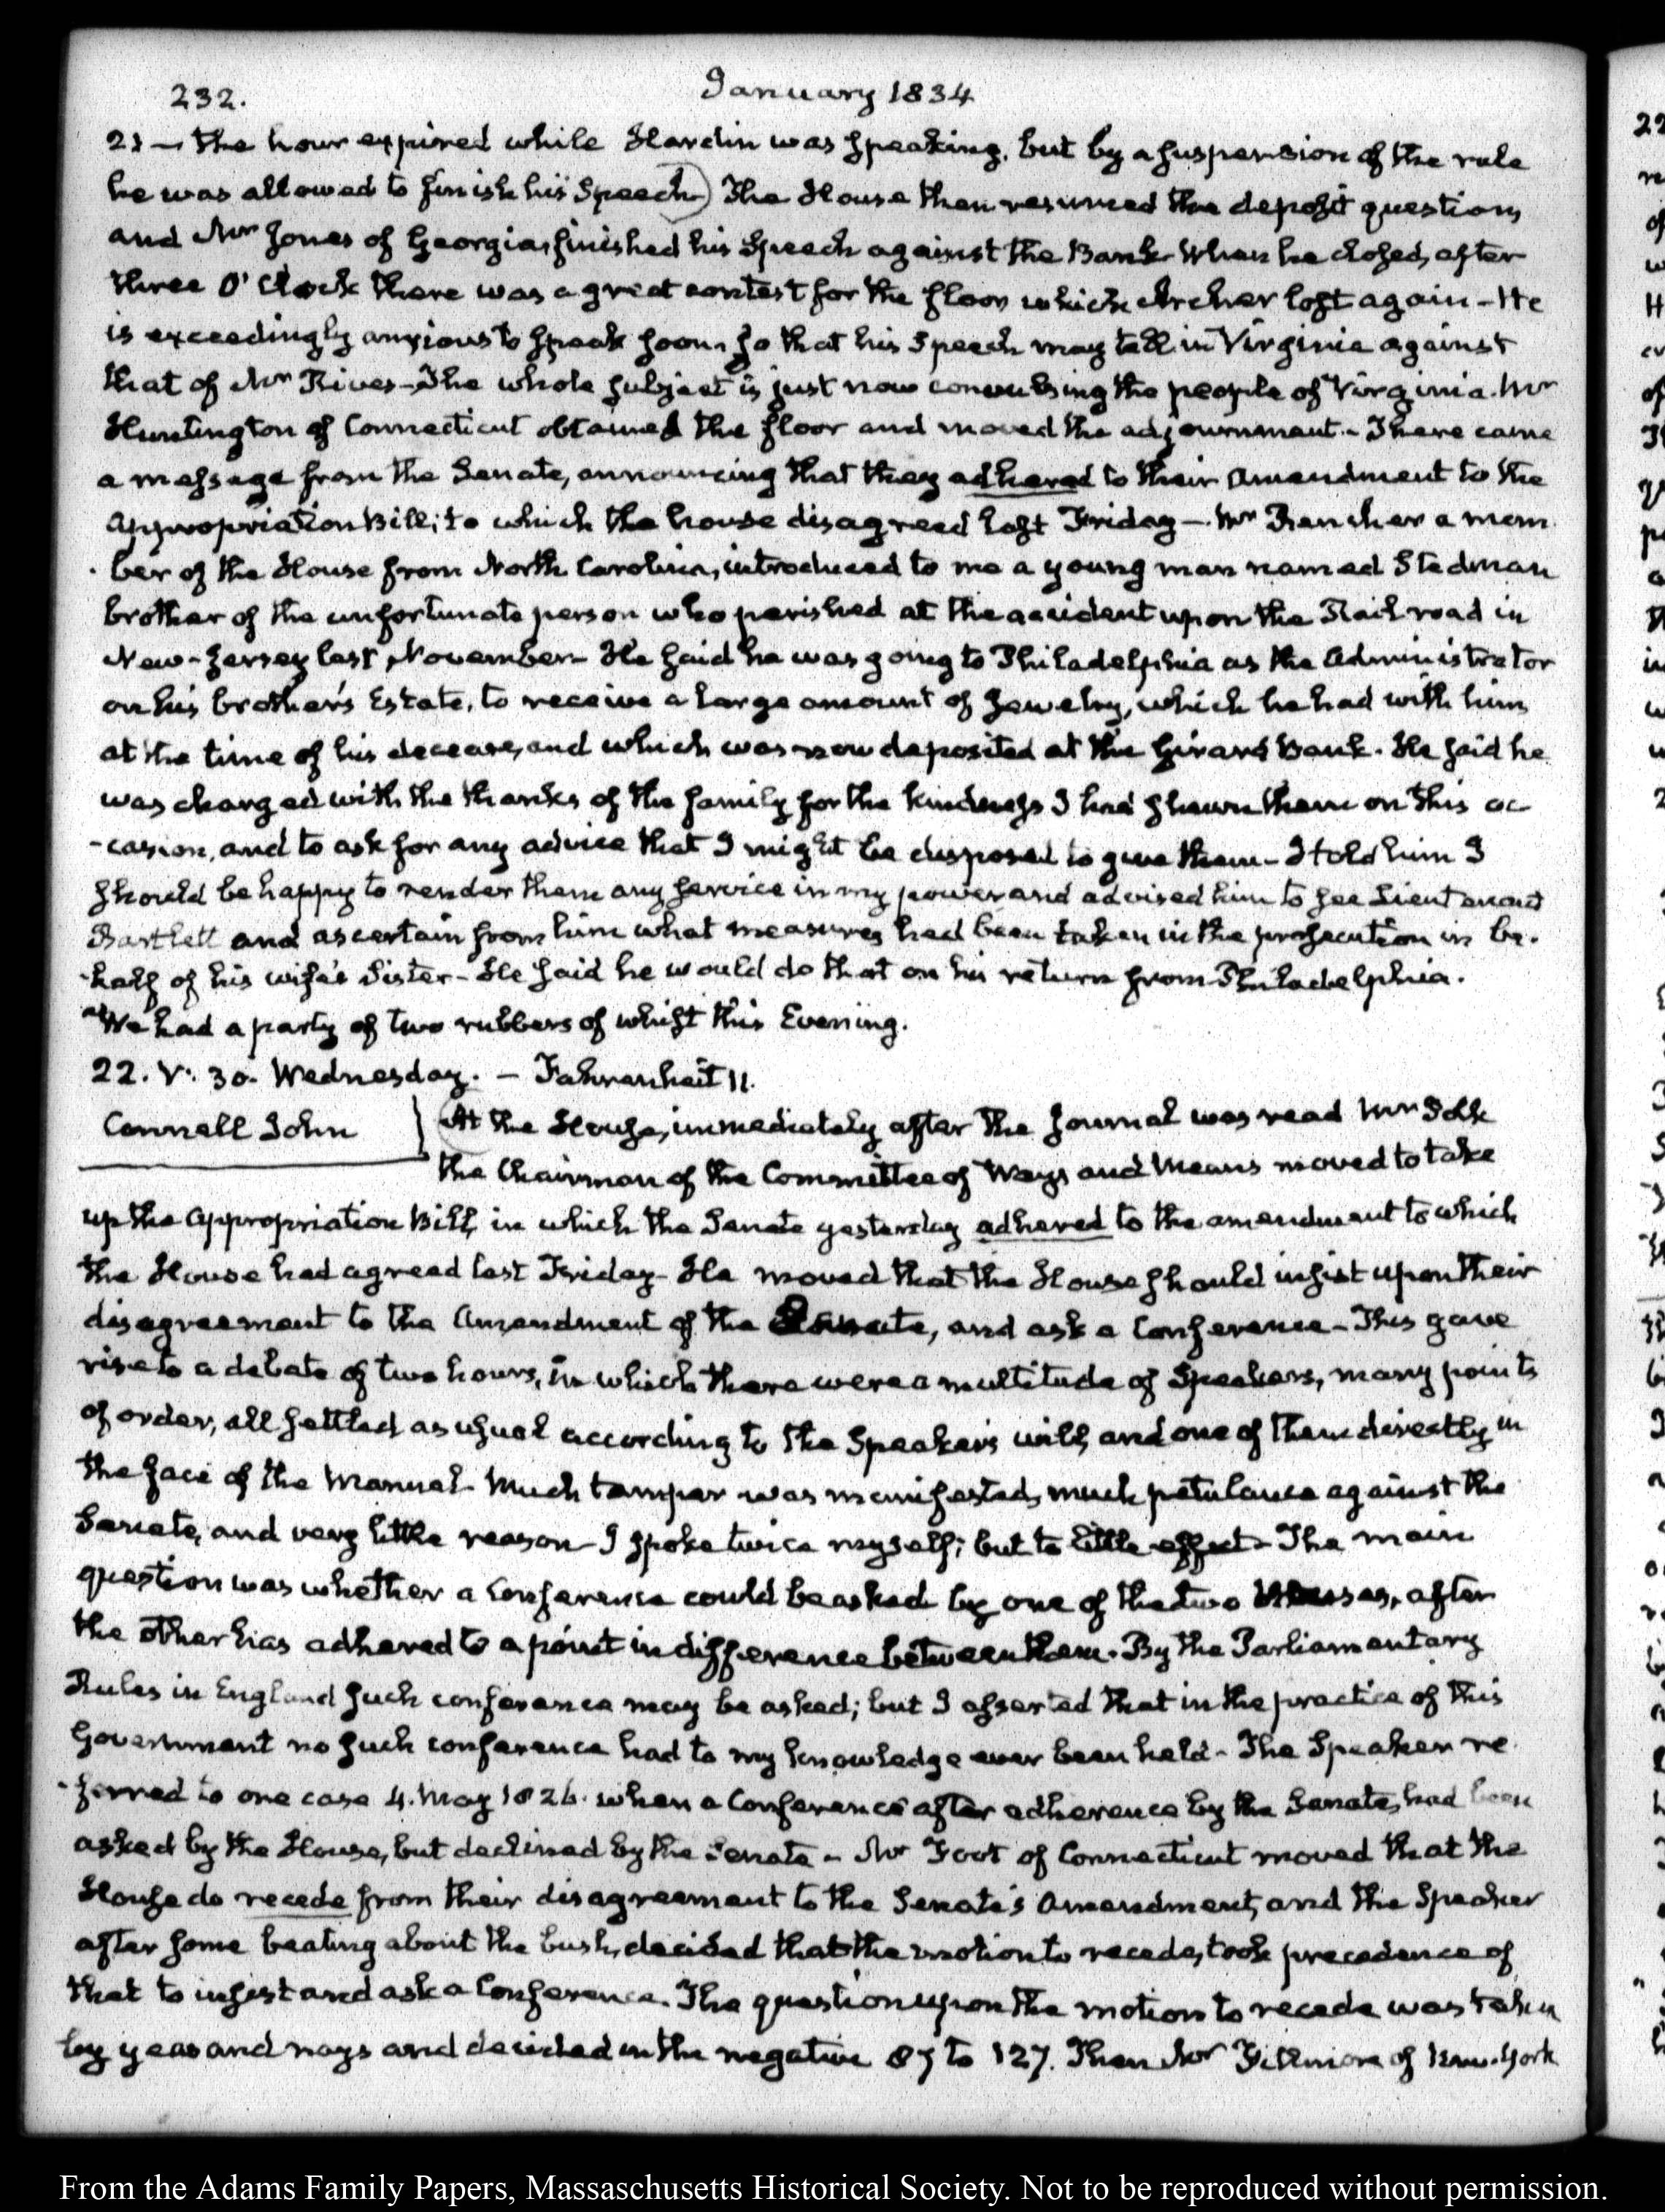 232.
January 1834
21 — the hour expired while Hardin was speaking, but by a suspension of the rule
he was allowed to finish his Speech) The House then resumed the deposit question,
and Mr Jones of Georgia, finished his Speech against the Bank. When he closed, after
three O'Clock there was a great contest for the floor which Archer lost again - He
is exceedingly anxious to speak soon, so that his Speech may tell in Virginia against
that of Mr Rives - The whole subject is just now convulsing the people of Virginia. Mr
Huntington of Connecticut obtained the floor and moved the adjournment. - There came
a message from the Senate, announcing that they adhered to their Amendment to the
Appropriation Bill; to which the house disagreed last Friday — Mr Rencher a mem
- ber of the House from North Carolina, introduced to me a young man named Stedman
brother of the unfortunate person who perished at the accident upon the Rail road in
New-Jersey last November - He said he was going to Philadelphia as the Administrator
on his brother's Estate, to receive a large amount of Jewelry, which he had with him
at the time of his decease, and which was now deposited at the Girard Bank. He said he
was charged with the thanks of the family for the kindness I had shewn them on this oc
-casion, and to ask for any advice that I might be disposed to give them - I told him I
should be happy to render them any service in my power and advised him to see Lieutenant
Bartlett and ascertain from him what measures had been taken in the prosecution in be-
-half of his wife's Sister - He said he would do that on his return from Philadelphia.
We had a party of two rubbers of whist this Evening.
22. V: 30. Wednesday. - Fahrenheit 11.
Connell John
At the House, immediately after the Journal was read Mr Polk
the Chairman of the Committee of Ways and Means moved to take
up the Appropriation Bill, in which the Senate yesterday adhered to the amendment to which
the House had agreed last Friday - He moved that the House should insist upon their
disagreement to the Amendment of the Senate, and ask a Conference - This gave
rise to a debate of two hours, in which there were a multitude of Speakers, many points
of order, all settled as usual according to the Speaker's will, and one of them directly in
the face of the Manual. Much temper was manifested, much petulance against the
Senate, and very little reason - I spoke twice myself; but to little effect - The main
question was whether a Conference could be asked by one of the two Houses, after
the other has adhered to a point in difference between them. By the Parliamentary
Rules in England such conference may be asked; but I asserted that in the practice of this
Government no such conference had to my knowledge ever been held - The Speaker re
-ferred to one case 4. May 1826. when a Conference after adherence by the Senate, had been
asked by the House, but declined by the Senate - Mr Foot of Connecticut moved that the
House do recede from their disagreement to the Senate's Amendment, and the Speaker
after some beating about the bush, decided that the motion to recede, took precedence of
that to insist and ask a Conference. The question upon the motion to recede was taken
by yeas and nays and decided in the negative 87 to 127. Then Mr Fillmore of New-York
From the Adams Family Papers, Massachusetts Historical Society. Not to be reproduced without permission.